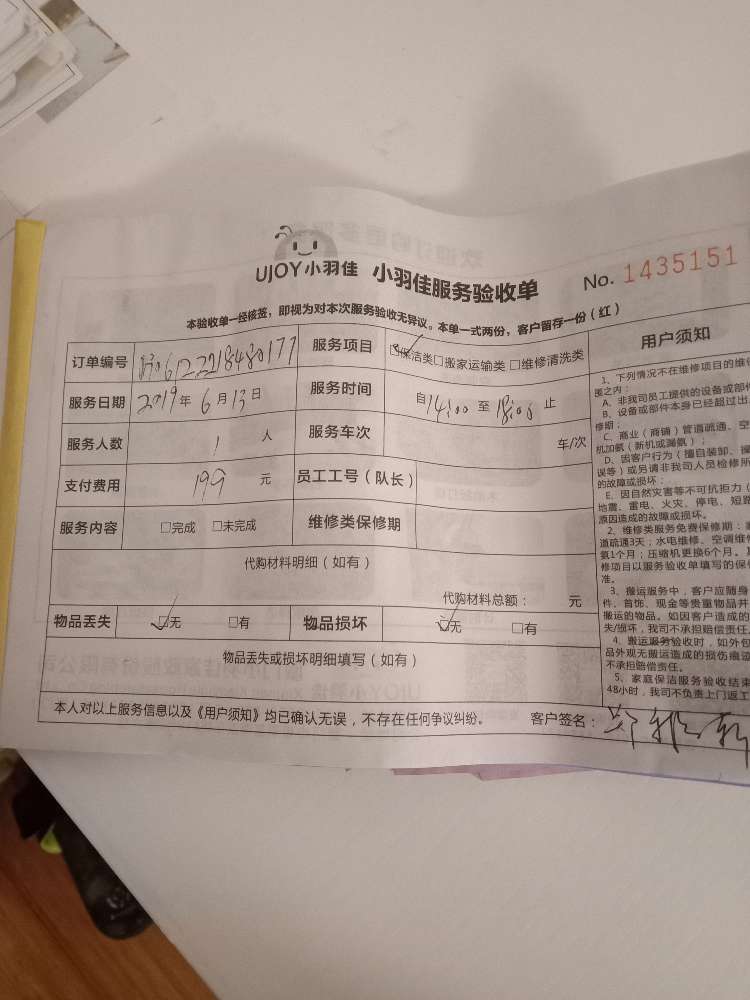 UJOY小羽佳 小羽佳服务验收单 No. 1435151
本验收单一经核签，即视为对本次服务验收无异议。本单一式两份，客户留存一份（红）
订单编号 服务项目 ☑保洁类□搬家运输类 □维修清洗类
服务日期 2019年 6月13日 服务时间 自14:00至18:00止
服务人数 1 人 服务车次 车/次
支付费用 199 元 员工工号（队长）
服务内容 □完成 □未完成 维修类保修期
代购材料明细（如有）
代购材料总额： 元
物品丢失 ☑无 □有 物品损坏 ☑无 □有
物品丢失或损坏明细填写（如有）
本人对以上服务信息以及《用户须知》均已确认无误，不存在任何争议纠纷。 客户签名：
用户须知
1、下列情况不在维修项目的维
围之内：
A、非我司员工提供的设备或部
B、设备或部件本身已经超过出
修期；
C、商业（商铺）管道疏通、空
机加氨（新机或漏氨）；
D、因客户行为（擅自装卸、操
误等）或另请非我司人员检修所
的故障或损坏；
E、因自然灾害等不可抗拒力（
地震、雷电、火灾、停电、短路
原因造成的故障或损坏。
2、维修类服务免费保修期：
道疏通3天；水电维修、空调维
氨1个月；压缩机更换6个月。
修项目以服务验收单填写的保
准。
3、搬运服务中，客户应随身
件、首饰、现金等贵重物品并
搬运的物品。如因客户造成的
失/损坏，我司不承担赔偿责任
4、搬运服务验收时，如外包
品外观无搬运造成的损伤痕
不承担赔偿责任。
5、家庭保洁服务验收结束
48小时，我司不负责上门返工